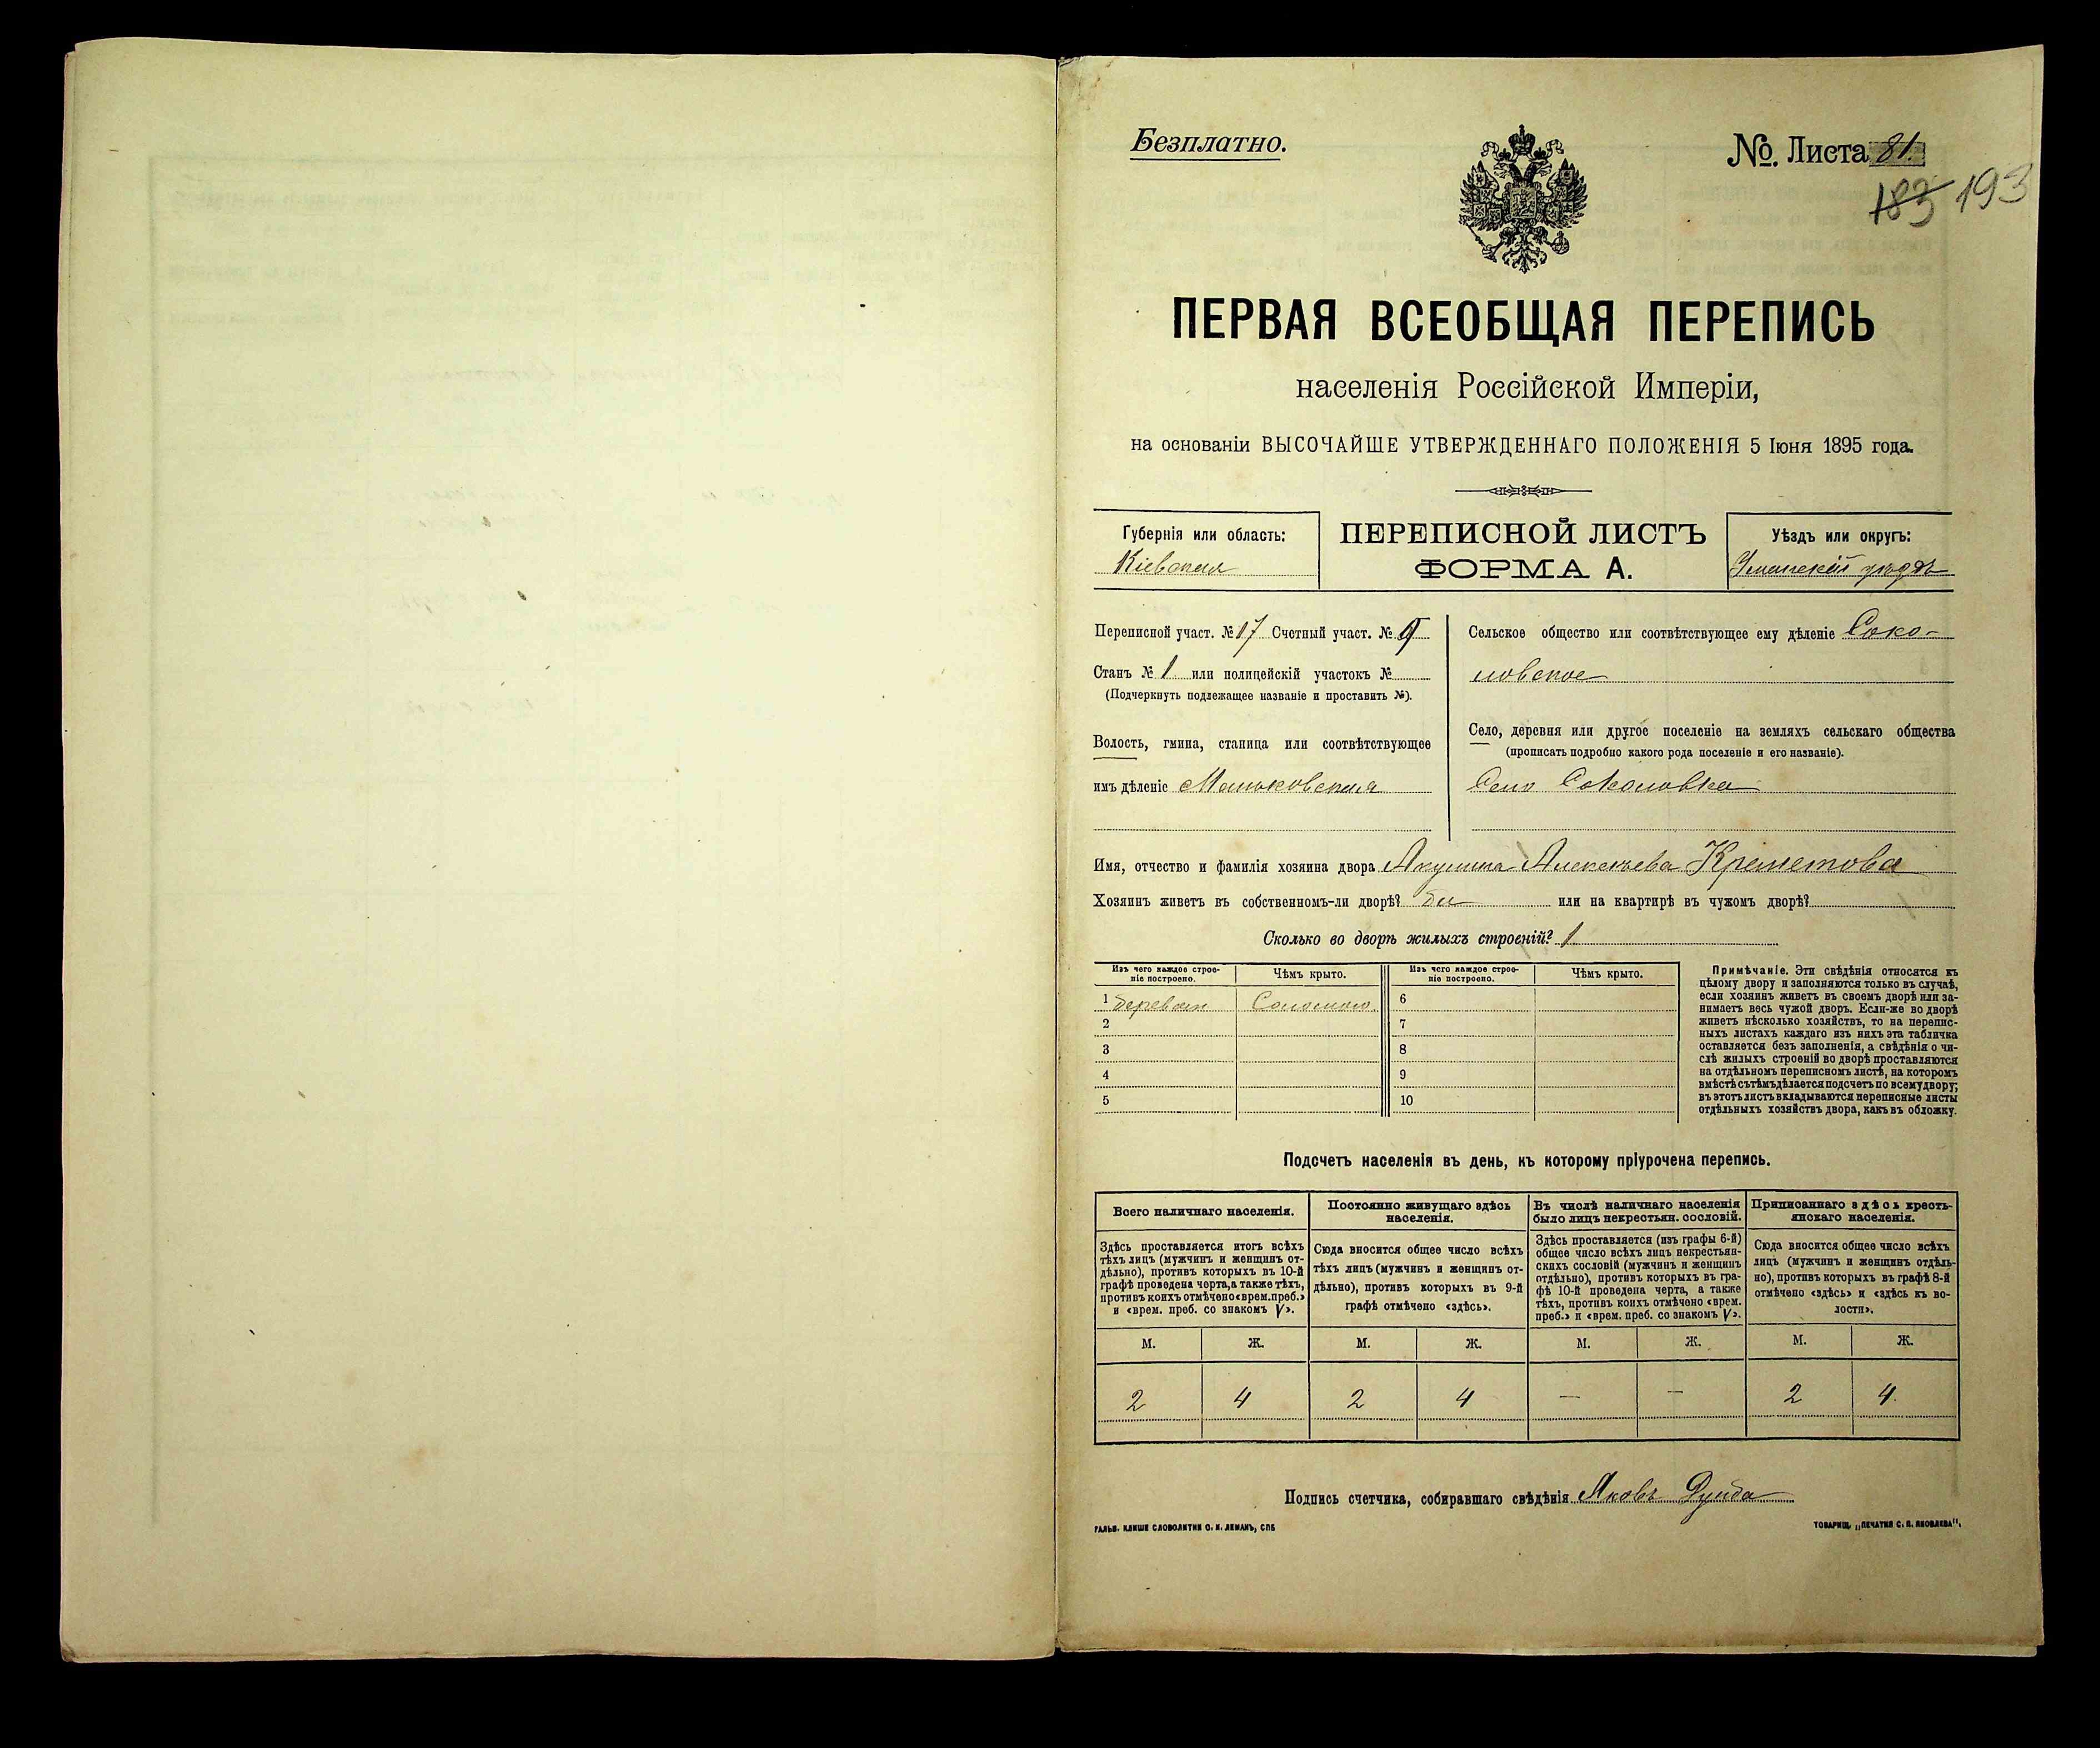 Безплатно.
№. Листа 81.
183 193
ПЕРВАЯ ВСЕОБЩАЯ ПЕРЕПИСЬ
населенія Россійской Имперіи,
на основаніи ВЫСОЧАЙШЕ УТВЕРЖДЕННАГО ПОЛОЖЕНІЯ 5 Іюня 1895 года.
Губернія или область:
Кіевская
ПЕРЕПИСНОЙ ЛИСТЪ
ФОРМА А.
Уѣздъ или округъ:
Уманскій уѣздъ
Переписной участ. № 17 Счетный участ. № 9
Станъ № 1 или полицейскій участокъ №
(Подчеркнуть подлежащее названіе и проставить №).
Волость, гмина, станица или соотвѣтствующее
имъ дѣленіе Маньковская
Сельское общество или соотвѣтствующее ему дѣленіе Соко-
ловское
Село, деревня или другое поселеніе на земляхъ сельскаго общества
(прописать подробно какого рода поселеніе и его названіе).
Село Соколовка
Имя, отчество и фамилія хозяина двора Акулина Алексѣева
Хозяинъ живетъ въ собственномъ-ли дворѣ? да или на квартирѣ въ чужомъ дворѣ?
Сколько во дворѣ жилыхъ строеній? 1
Изъ чего каждое строе-
ніе построено.
Чѣмъ крыто.
Изъ чего каждое строе-
ніе построено.
Чѣмъ крыто.
1 Соломою 6
2 7
3 8
4 9
5 10
Примѣчаніе. Эти свѣдѣнія относятся къ
цѣлому двору и заполняются только въ случаѣ,
если хозяинъ живетъ въ своемъ дворѣ или за-
нимаетъ весь чужой дворъ. Если-же во дворѣ
живетъ нѣсколько хозяйствъ, то на перепис-
ныхъ листахъ каждаго изъ нихъ эта табличка
оставляется безъ заполненія, а свѣдѣнія о чи-
слѣ жилыхъ строеній во дворѣ проставляются
на отдѣльномъ переписномъ листѣ, на которомъ
вмѣстѣ съ тѣмъ дѣлается подсчетъ по всему двору;
въ этотъ листъ вкладываются переписные листы
отдѣльныхъ хозяйствъ двора, какъ въ обложку.
Подсчетъ населенія въ день, къ которому пріурочена перепись.
Всего наличнаго населенія.
Постоянно живущаго здѣсь
населенія.
Въ числѣ наличнаго населенія
было лицъ некрестьян. сословій.
Приписаннаго здѣсь кресть-
янскаго населенія.
Здѣсь проставляется итогъ всѣхъ
тѣхъ лицъ (мужчинъ и женщинъ от-
дѣльно), противъ которыхъ въ 10-й
графѣ проведена черта, а также тѣхъ,
противъ коихъ отмѣчено «врем. преб.»
и «врем. преб. со знакомъ V».
Сюда вносится общее число всѣхъ
тѣхъ лицъ (мужчинъ и женщинъ от-
дѣльно), противъ которыхъ въ 9-й
графѣ отмѣчено «здѣсь».
Здѣсь проставляется (изъ графы 6-й)
общее число всѣхъ лицъ некрестьян-
скихъ сословій (мужчинъ и женщинъ
отдѣльно), противъ которыхъ въ гра-
фѣ 10-й проведена черта, а также
тѣхъ, противъ коихъ отмѣчено «врем.
преб.» и «врем. преб. со знакомъ V».
Сюда вносится общее число всѣхъ
лицъ (мужчинъ и женщинъ отдѣль-
но), противъ которыхъ въ графѣ 8-й
отмѣчено «здѣсь» и «здѣсь къ во-
лости».
М. Ж. М. Ж. М. Ж. М. Ж.
2 4 2 4 — — 2 4
Подпись счетчика, собиравшаго свѣдѣнія Яковъ
ГАЛЬВ. КЛИШЕ СЛОВОЛИТНИ О. И. ЛЕМАНЪ, СПБ
ТОВАРИЩ. „ПЕЧАТНЯ С. П. ЯКОВЛЕВА".